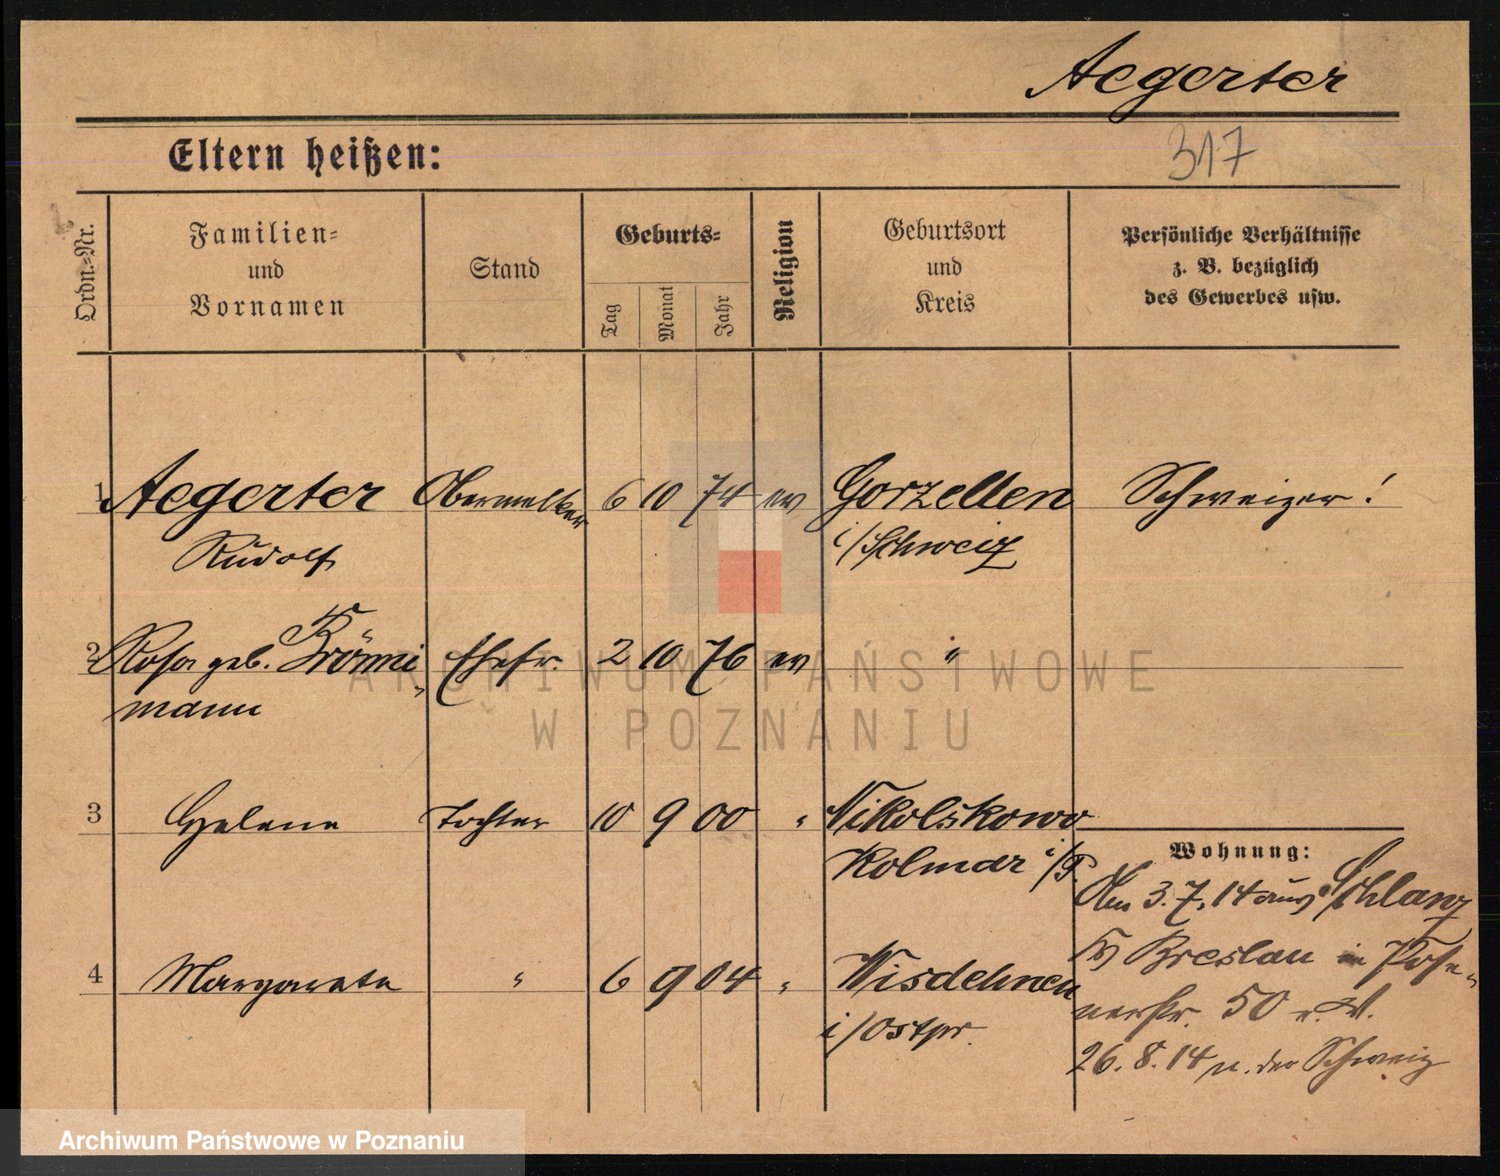 Aegerter
Eltern heißen:
317
Ordn.-Nr.
Familien-
und
Vornamen
Stand
Geburts-
Tag
Monat
Jahr
Religion
Geburtsort
und
Kreis
Persönliche Verhältnisse
z. B. bezüglich
des Gewerbes usw.
1 Aegerter Obermelker 6 10 74 ev Gorzellen Schweizer!
Rudolf i/Schweiz
2 Rosa geb. Brönni Ehefr. 2 10 76 ev "
mann
3 Helene Tochter 10 9 00 " Nikolskowo
Kolmar i/P.
Wohnung:
3.7.14 aus Schlanz
Breslau in Pose-
nerstr. 50
4 Margareta " 6 9 04 " Wisdehnen
i/Ostpr.
26.8.14 n. der Schweiz
ARCHIWUM PAŃSTWOWE
W POZNANIU
Archiwum Państwowe w Poznaniu